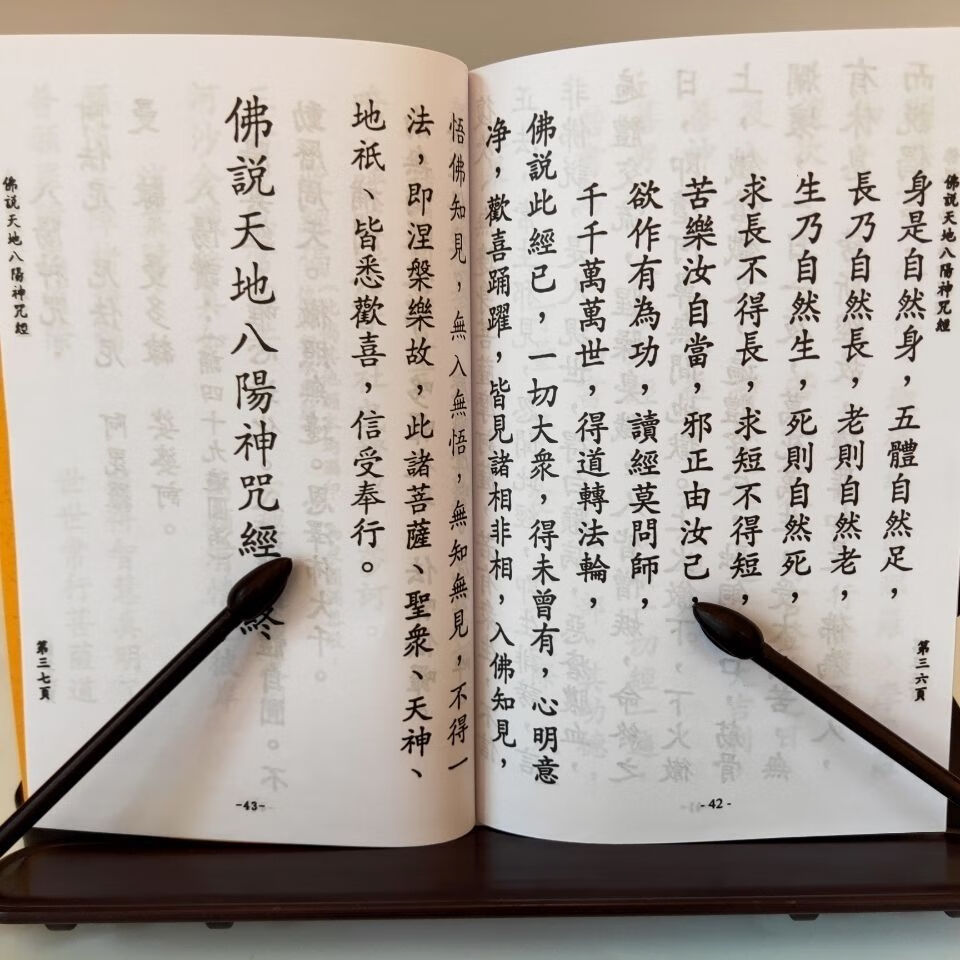 佛說天地八陽神咒經
第三六頁
身是自然身，五體自然足，
長乃自然長，老則自然老，
生乃自然生，死則自然死，
求長不得長，求短不得短，
苦樂汝自當，邪正由汝己，
欲作有為功，讀經莫問師，
千千萬萬世，得道轉法輪，
佛說此經已，一切大衆，得未曾有，心明意
净，歡喜踊躍，皆見諸相非相，入佛知見，
- 42 -
悟佛知見，無入無悟，無知無見，不得一
法，即涅槃樂故，此諸菩薩、聖衆、天神、
地祇、皆悉歡喜，信受奉行。
佛說天地八陽神咒經 終
-43-
佛說天地八陽神咒經
第三七頁